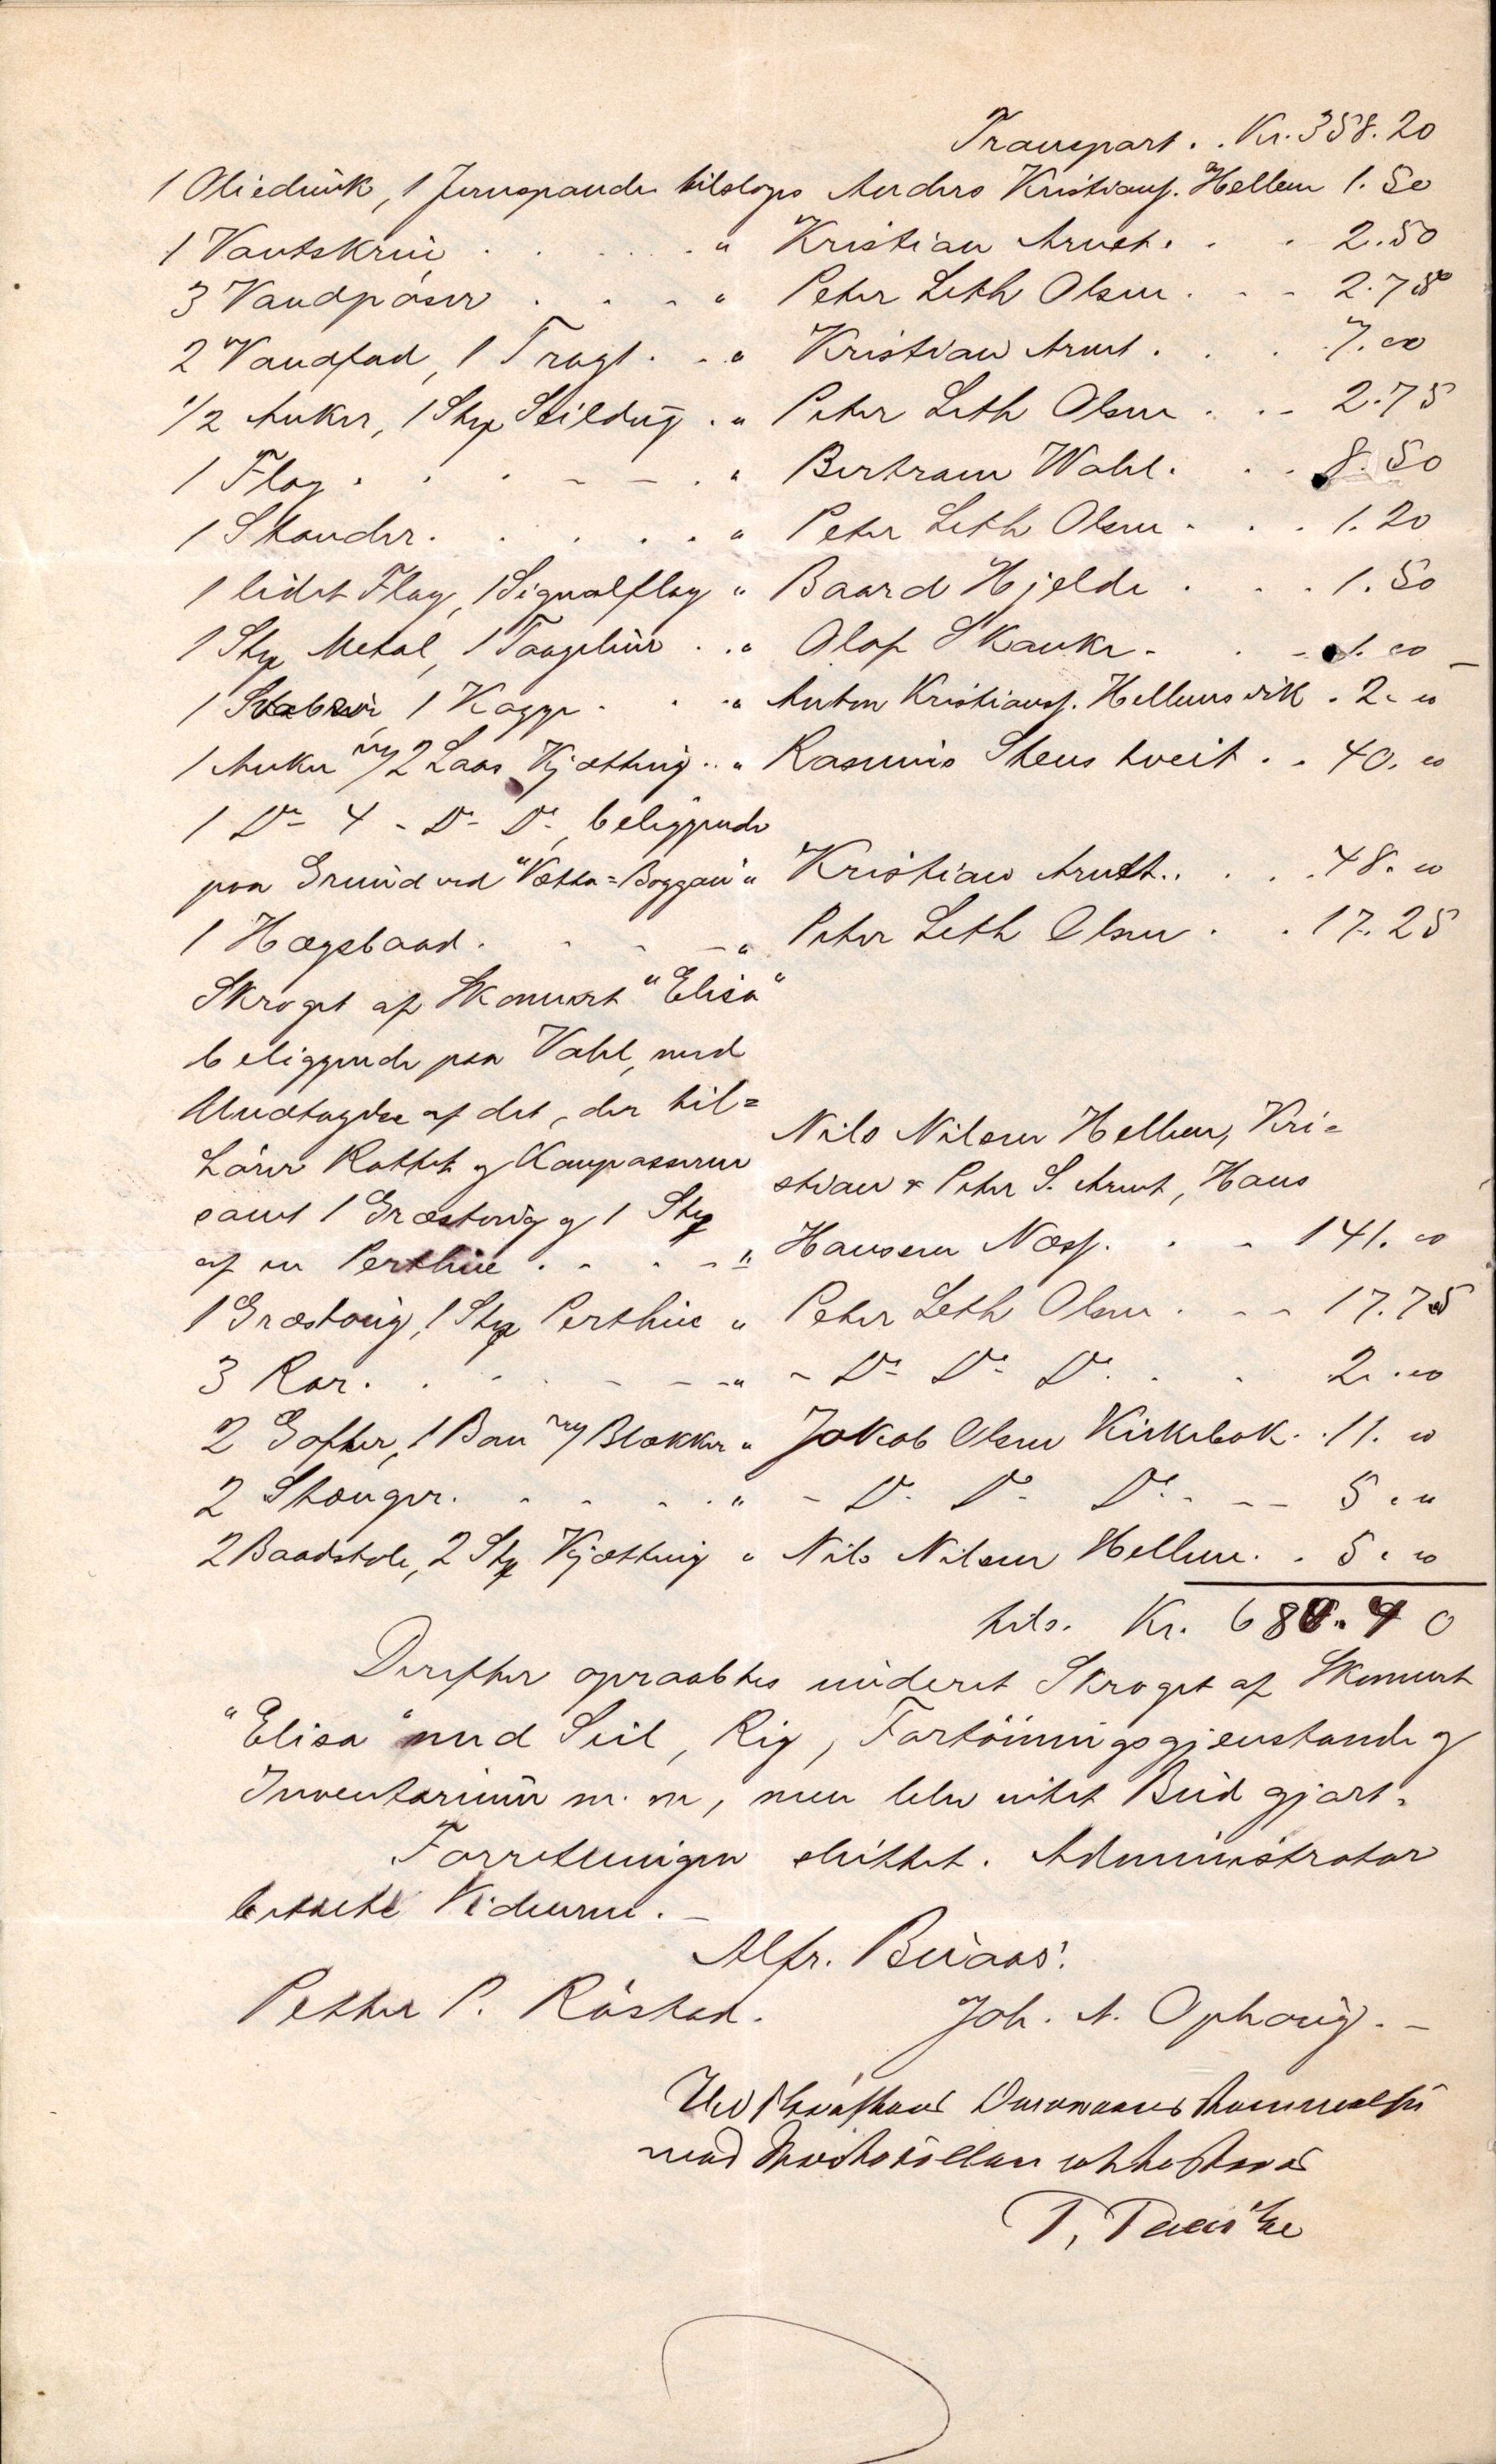 Transport . . Kr. 358.20
1 Oliedunk, 1 Jernspande tilslags Anders Kristians. Hellem 1.50
1 Vantskrue . . . . . " Kristian Arnet . . . 2.50
3 Vandpöser . . - " Peter Leth Olsen . - - 2.75
2 Vandfad, 1 Tragt . . . " Kristian Arnet . . . 7.00
1/2 Anker, 1 Stk Seildug . " Peter Leth Olsen . . - 2.75
1 Flag . . . - - . " Bertram Wahl . . . 8.50
1 Stander . . . . . . " Peter Leth Olsen . . . 1.20
1 lidet Flag, 1 Signalflag " Baard Hjelde . . . 1.50
1 Stk Metal, 1 Taagelur . . " Olaf Skanke - . - 1.00
1 1 Kagge . . . " Anton Kristians. Hellemsvik . 2. "
1 Anker m/ 2 Laas Kjætting . . " Rasmus Stenstveit . . 40. "
1 Do 4 - Do - Do, beliggende
paa Grund ved "Vætta=Boggan" " Kristian Arnet . . . . 48. "
1 Hægsbaad . - - - " Peter Leth Olsen . . 17.25
Skroget af Skonnert "Elisa"
beliggende paa Vahl, med
Undtagelse af det, der til=
hører Rattet og Kompasserne
samt 1 Græstoug og 1 Stk
af en Pertline . - . - " 
Nils Nilsen Hellem, Kri=
stian & Peter S. Arnet, Hans
Hansen Næss. . - 141. 00
1 Græstoug, 1 Stk Pertline " Peter Leth Olsen . - - 17.75
3 Rær . . - - - - " - Do Do Do . . . 2.00
2 Gafler, 1 Bom m/ Blokker " Jakob Olsen Kirkebak . . 11. "
2 Stænger . - - - . " - Do Do Do . - - - 5. "
2 Baadstole, 2 Stk Kjætting " Nils Nilsen Hellem . . 5. "
tils. Kr. 680.40
Derefter opraabtes underet Skroget af Skonnert
"Elisa" med Seil, Rig, Fortöiningsgjenstande og
Inventarium m.m, men blev intet Bud gjort.
Forretningen sluttet. Administrator
betalte Vidnerne. -
Alfr. Buaas.
Petter P. Röstad. Joh. A. Ophoug. -
T.